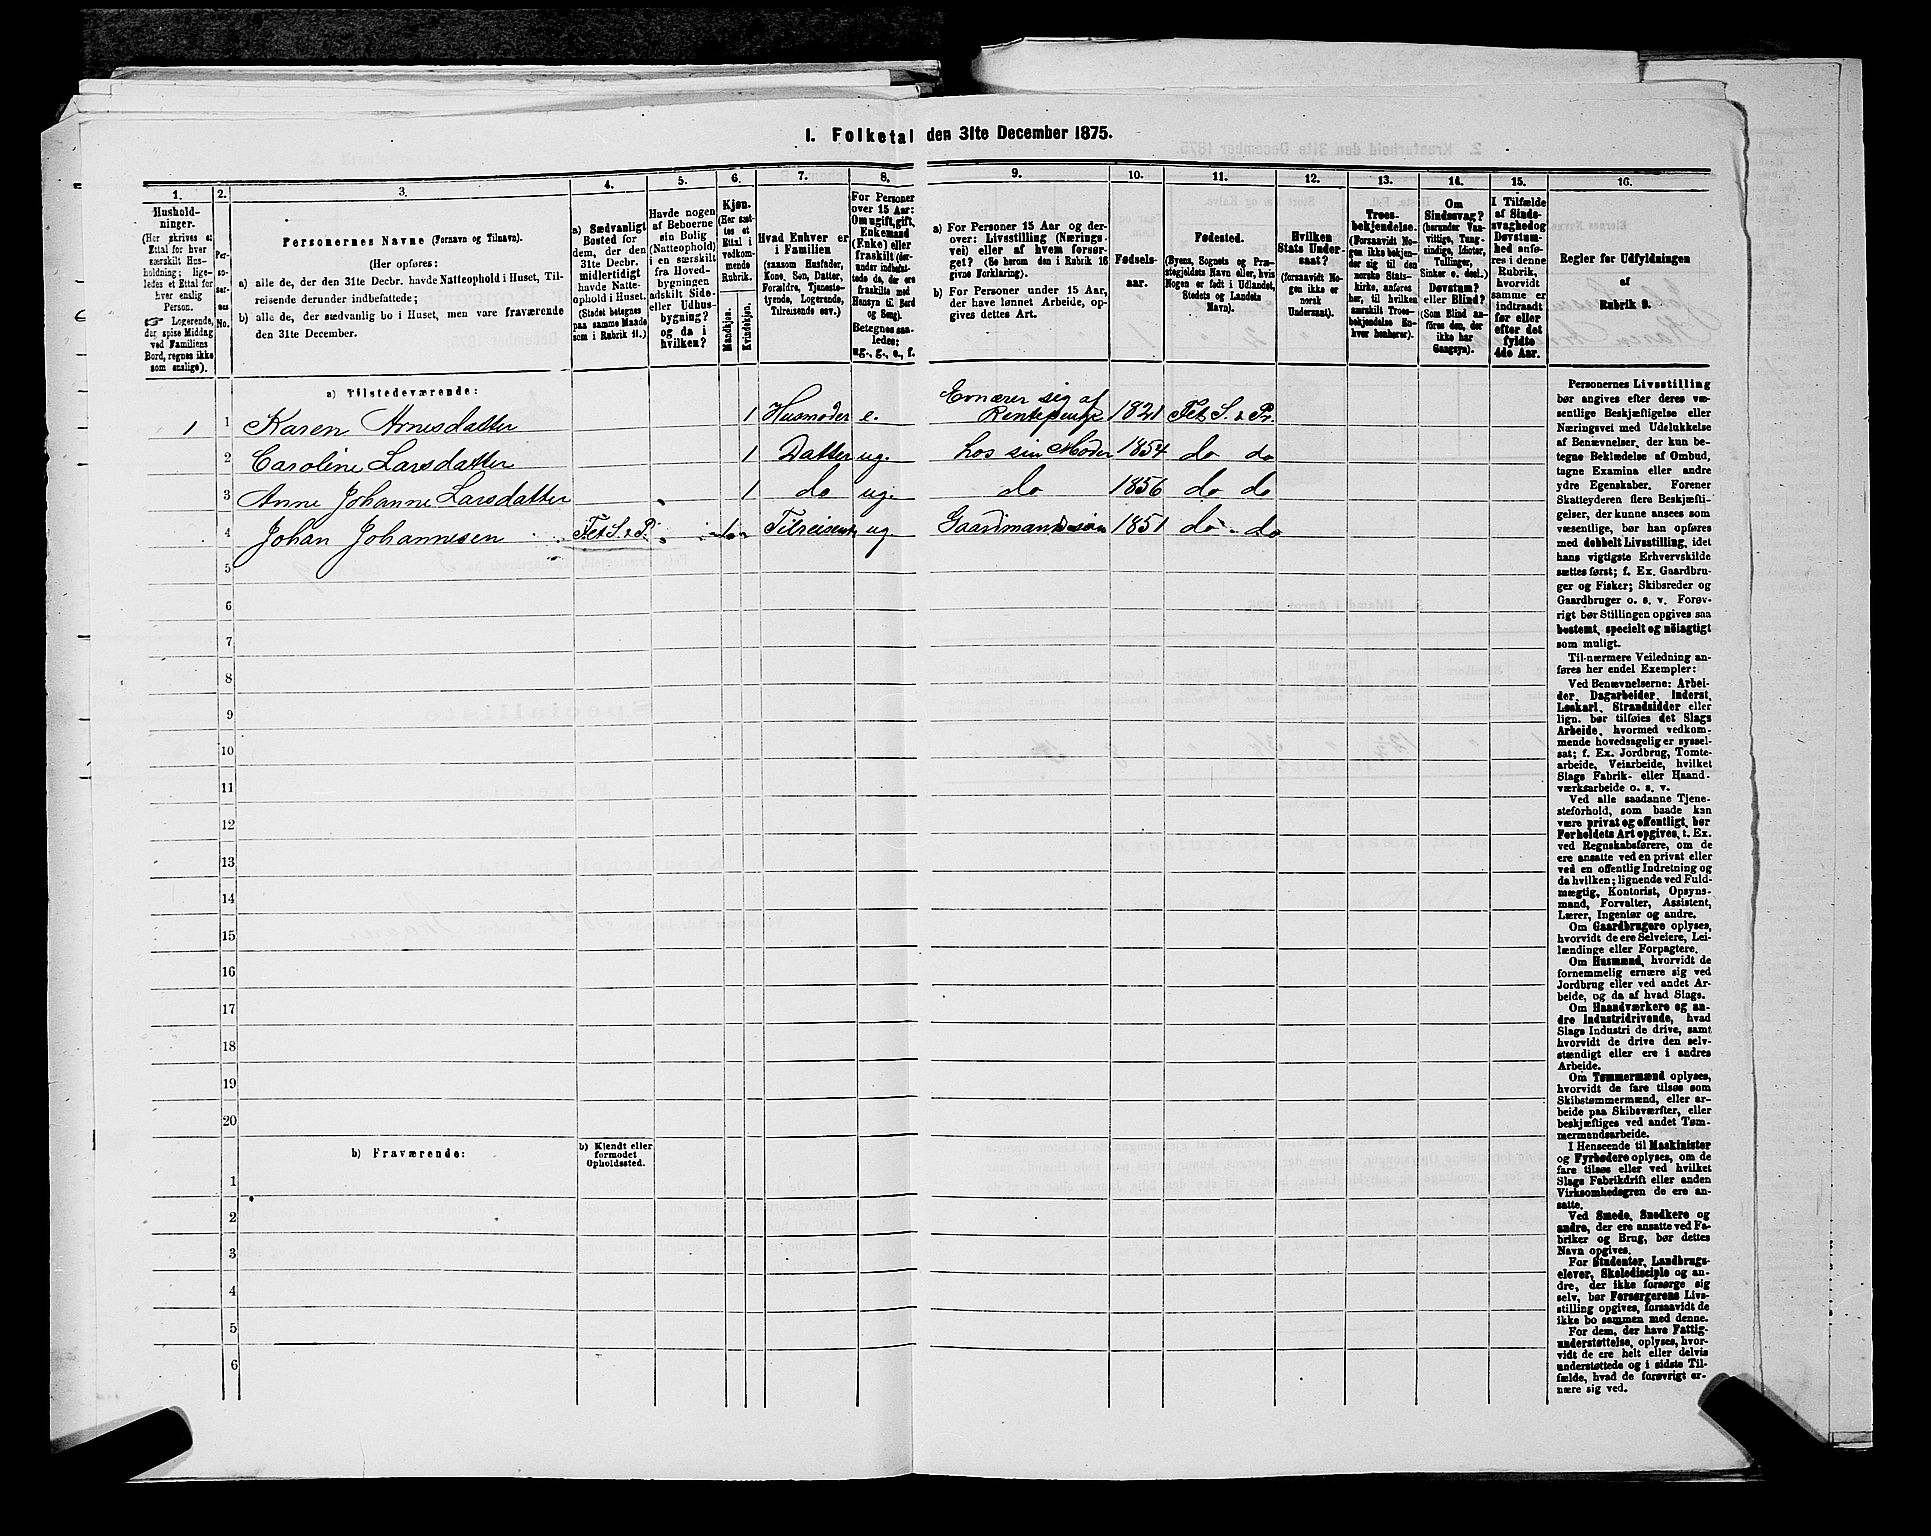 I. Folketal den 31te December 1875.
1. 2. 3. 4. 5. 6. 7. 8. 9. 10. 11. 12. 13. 14. 15. 16.
Hushold-
ninger.
(Her skrives et
Ettal for hver
særskilt Hus-
holdning; lige-
ledes et Ettal for
hver enslig
Person.
☞ Logerende,
der spise Middag
ved Familiens
Bord, regnes ikke
som enslige).
Per-
so-
ner-
nes
No.
Personernes Navne (Fornavn og Tilnavn).
(Her opføres:
a) alle de, der den 31te Decbr. havde Natteophold i Huset, Til-
reisende derunder indbefattede;
b) alle de, der sædvanlig bo i Huset, men vare fraværende
den 31te December.
a) Sædvanligt
Bosted for
dem, der den
31te Decbr.
midlertidigt
havde Natte-
ophold i Huset.
(Stedet betegnes
paa samme Maade
som i Rubrik 11.)
Havde nogen
af Beboerne
sin Bolig
(Natteophold)
i en særskilt
fra Hoved-
bygningen
adskilt Side-
eller Udhus-
bygning?
og da i
hvilken?
Kjøn.
(Her sæt-
tes et
Ettal i
vedkom-
mende
Rubrik.
Mandkjøn.
Kvindekjøn.
Hvad Enhver er
i Familien
(saasom Husfader,
Kone, Søn, Datter,
Forældre, Tjeneste-
tyende, Logerende,
Tilreisende osv.)
For Personer
over 15 Aar:
Om ugift, gift,
Enkemand
(Enke) eller
fraskilt (der-
under indbefat-
tede de, der ere
fraskilte med
Hensyn til Bord
og Seng).
Betegnes saa-
ledes:
ug., g., e., f.
a) For Personer 15 Aar og der-
over: Livsstilling (Nærings-
vei) eller af hvem forsør-
get? (Se herom den i Rubrik 16
givne Forklaring).
b) For Personer under 15 Aar,
der have lønnet Arbeide, op-
gives dettes Art.
Fødsels-
aar.
Fødested.
(Byens, Sognets og Præ-
stegjeldets Navn eller, hvis
Nogen er født i Udlandet,
Stedets og Landets
Navn).
Hvilken
Stats Under-
saat?
(forsaavidt No-
gen ikke er
norsk
Undersaat).
Troes-
bekjendelse.
(Forsaavidt No-
gen ikke bekjen-
der sig til den
norske Stats-
kirke, anføres
her, til hvilken
særskilt Troes-
bekjendelse En-
hver henhører).
Om
Sindssvag?
(herunder Van-
vittige, Tung-
sindige, Idioter,
Tullinger,
Sinker o. desl.)
Døvstum?
eller Blind?
(Som Blind an-
føres den, der
ikke har
Gangsyn).
I Tilfælde
af Sinds-
svaghed og
Døvstum-
hed anfø-
res i denne
Rubrik,
hvorvidt
samme er
indtraadt
før eller
efter det
fyldte
4de Aar.
Regler for Udfyldningen
af
Rubrik 9.
a) Tilstedeværende:
1 1 Karen Arnesdatter 1 Husmoder e. Ernærer sig af 1821 Fet S. & Pr.
2 Caroline Larsdatter 1 Datter ug. hos sin Moder 1854 do do
3 Anne Johanne Larsdatter 1 do ug. do 1856 do do
4 Johan Johannesen Fet S. & P. 1 ug. 1851 do do
5
6
7
8
9
10
11
12
13
14
15
16
17
18
19
20
b) Fraværende:
b) Kjendt eller
formodet
Opholdssted.
1
2
3
4
5
6
Personernes Livsstilling
bør angives efter deres væ-
sentlige Beskjæftigelse eller
Næringsvei med Udelukkelse
af Benævnelser, der kun be-
tegne Beklædelse af Ombud,
tagne Examina eller andre
ydre Egenskaber. Forener
Skatteyderen flere Beskjæfti-
gelser, der kunne ansees som
væsentlige, bør han opføres
med dobbelt Livsstilling, idet
hans vigtigste Erhvervskilde
sættes først; f. Ex. Gaardbru-
ger og Fisker; Skibsreder og
Gaardbruger o. s. v. Forøv-
rigt bør Stillingen opgives saa
bestemt, specielt og nöiagtigt
som muligt.
Til nærmere Veiledning an-
føres her endel Exempler:
Ved Benævnelserne: Arbei-
der, Dagarbeider, Inderst,
Løskarl, Strandsidder eller
lign. bør tilføies det Slags
Arbeide, hvormed vedkom-
mende hovedsagelig er syssel-
sat; f. Ex. Jordbrug, Tomte-
arbeide, Veiarbeide, hvilket
Slags Fabrik- eller Haand-
værksarbeide o. s. v.
Ved alle saadanne Tjene-
steforhold, som baade kan
være privat og offentligt, bør
Forholdets Art opgives, t. Ex.
ved Regnskabsførere, om de
ere ansatte ved en privat eller
ved en offentlig Indretning og
da hvilken; lignende ved Fuld-
mægtig, Kontorist, Opsyns-
mand, Forvalter, Assistent,
Lærer, Ingeniør og andre.
Om Gaardbrugere oplyses,
hvorvidt de ere Selveiere, Lei-
lændinge eller Forpagtere.
Om Husmænd, hvorvidt de
fornemmelig ernære sig ved
Jordbrug eller ved andet Ar-
beide, og da af hvad Slags.
Om Haandværkere og an-
dre Industridrivende, hvad
Slags Industri de drive, samt
hvorvidt de drive den selv-
stændigt eller ere i andres
Arbeide.
Om Tømmermænd oplyses,
hvorvidt de fare tilsøs som
Skibstømmermænd, eller ar-
beide paa Skibsværfter, eller
beskjæftiges ved andet Tøm-
mermandsarbeide.
I Henseende til Maskinister
og Fyrbødere oplyses, om de
fare tilsøs eller ved hvilket
Slags Fabrikdrift eller anden
Virksomhedsgren de ere an-
satte.
Ved Smede, Snedkere og
andre, der ere ansatte ved Fa-
briker og Brug, bør dettes
Navn opgives.
For Studenter, Landbrugs-
elever, Skoledisciple og an-
dre, der ikke forsørge sig
selv, bør Forsørgerens Livs-
stilling opgives, forsaavidt de
ikke bo sammen med denne.
For dem, der have Fattig-
understøttelse, oplyses, hvor-
vidt de ere helt eller delvis
understøttede og i sidste Til-
fælde, hvad de forøvrigt er-
nære sig ved.